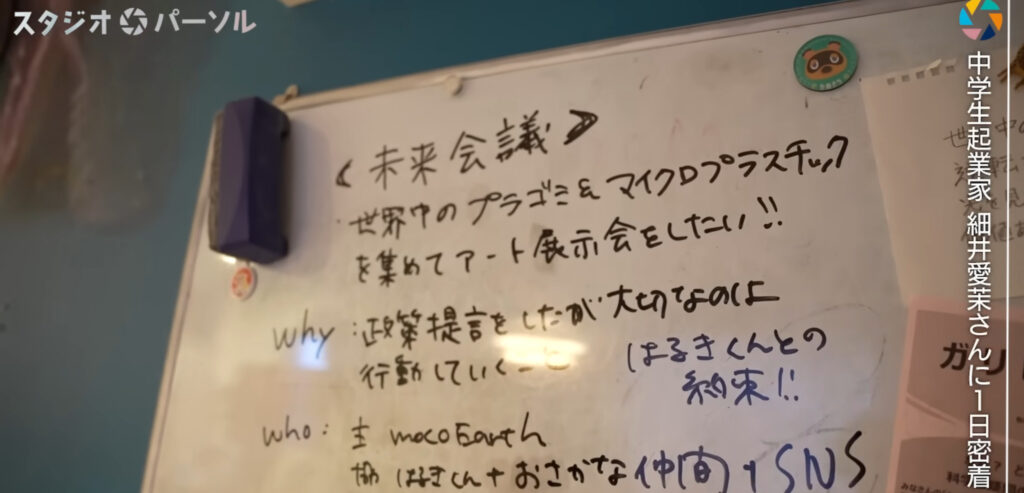 スタジオパーソル
中学生起業家 細井愛茉さんに1日密着
〈未来会議〉
・世界中のプラゴミ& マイクロプラスチック
を集めてアート展示会をしたい!!
why : 政策提言をしたが大切なのは
行動していくこと
はるきくんとの
約束!!
who : 主 mocoEarth
協 はるきくん+おさかな仲間+SNS
ガリ